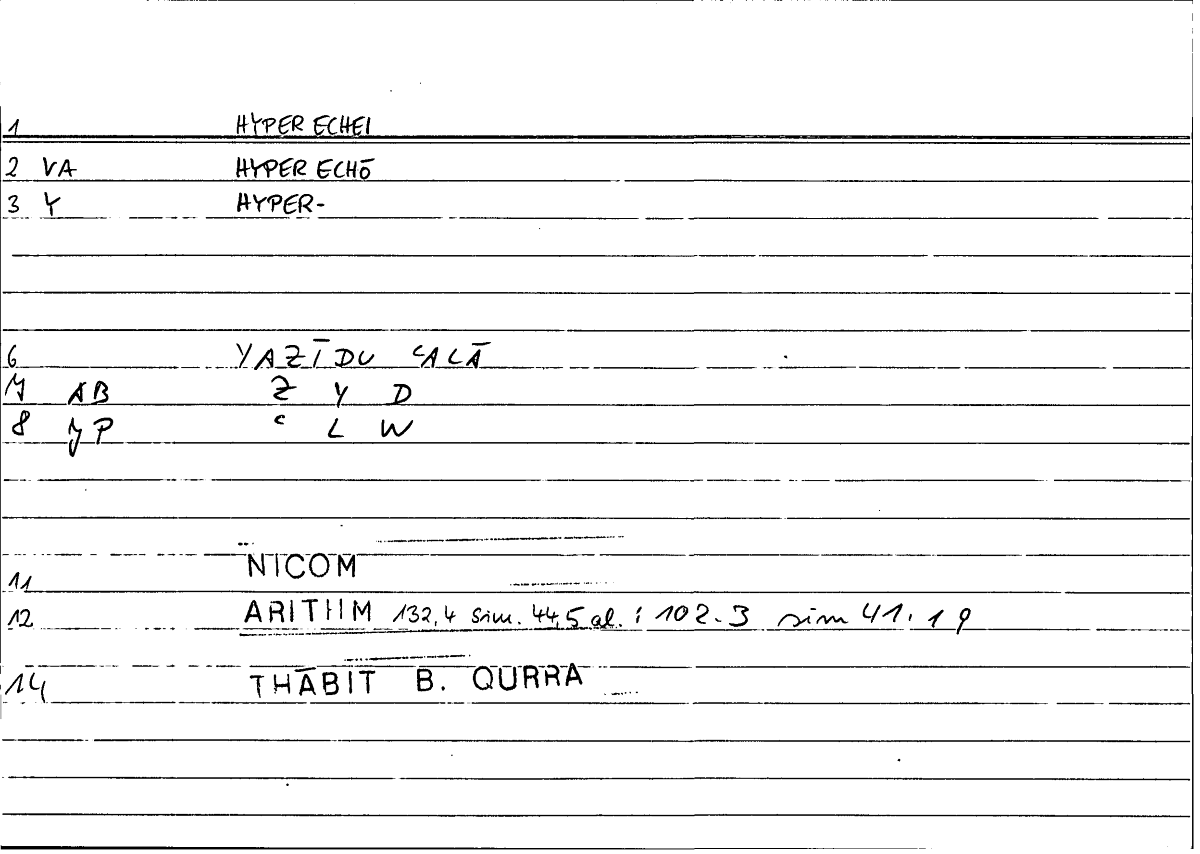 1 HYPER ECHEI
2 VA HYPER ECHŌ
3 Y HYPER-
6 YAZĪDU ʿALĀ
7 AB Z Y D
8 JP ʿ L W
11 NICOM
12 ARITHM 132,4 sim. 44,5 al. : 102.3 sim 41.19
14 THĀBIT B. QURRA